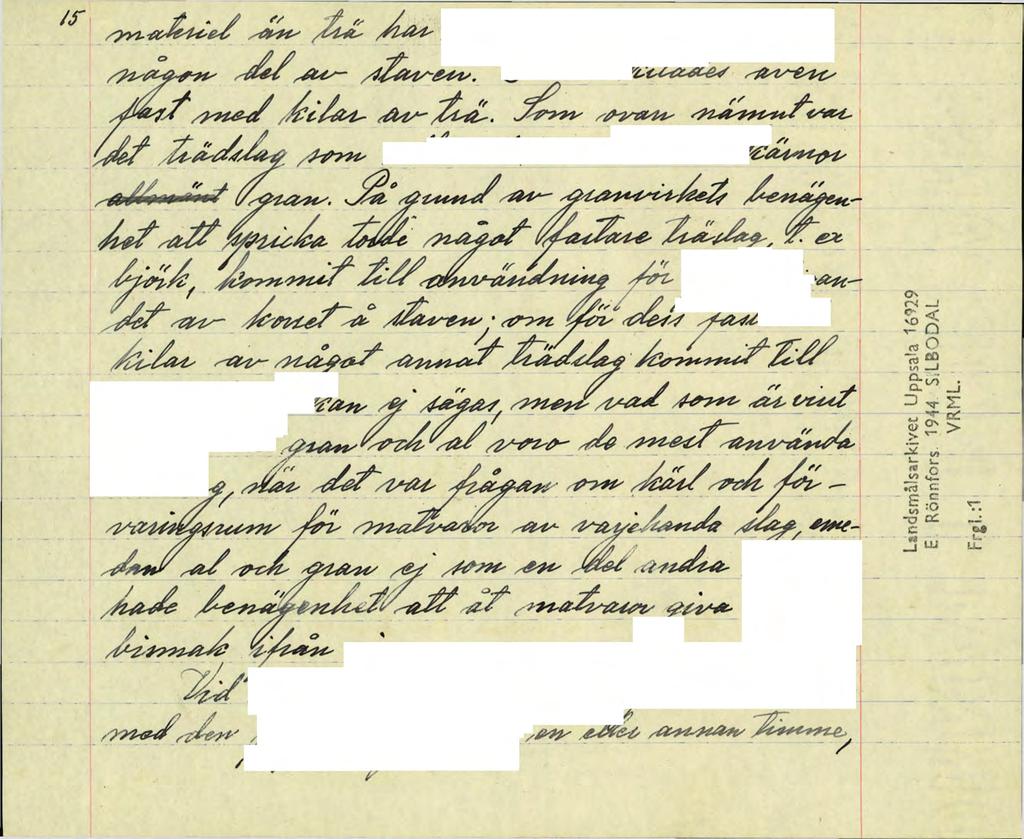 15
materiel än trä har
någon del av staven. även
fast med kilar av trä. Som ovan nämnt var
det trädslag som kärnor
allmänt gran. På grund av granvirkets benägen-
het att spricka torde något fastare träslag, t. ex
björk, kommit till användning för an-
det av korset å staven; om för dess
kilar av något annat trädslag kommit till
kan ej sägas, men vad som är visst
gran och al voro de mest använda
g, när det var frågan om kärl och för-
varingsrum för matvaror av varjehanda slag, eme-
dan al och gran ej som en del andra
hade benägenhet att åt matvaror giva
bismak ifrån
Vid
med den en eller annan timme,
Landsmålsarkivet Uppsala 16929
E. Rönnfors. 1944. SILBODAL
VRML.
Frgl.:1